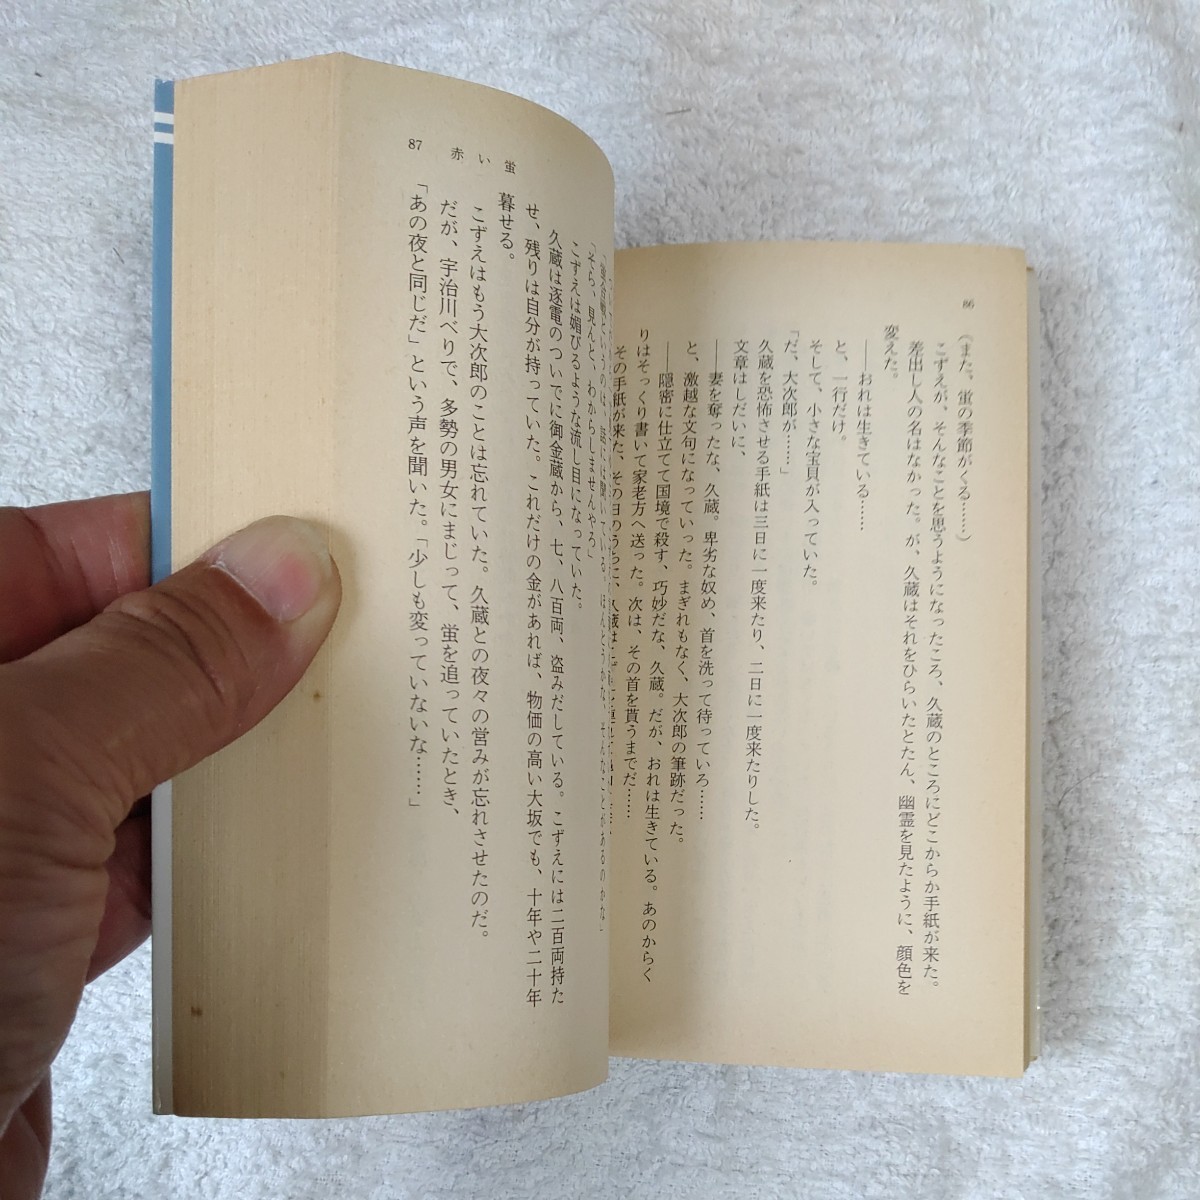 86
(また、蛍の季節がくる……)
こずえが、そんなことを思うようになったころ、久蔵のところにどこからか手紙が来た。
差出し人の名はなかった。が、久蔵はそれをひらいたとたん、幽霊を見たように、顔色を
変えた。
――おれは生きている……
と、一行だけ。
そして、小さな宝貝が入っていた。
「だ、大次郎が……」
久蔵を恐怖させる手紙は三日に一度来たり、二日に一度来たりした。
文章はしだいに、
――妻を奪ったな、久蔵。卑劣な奴め、首を洗って待っていろ……
と、激越な文句になっていった。まぎれもなく、大次郎の筆跡だった。
――隠密に仕立てて国境で殺す、巧妙だな、久蔵。だが、おれは生きている。あのからく
りはそっくり書いて家老方へ送った。次は、その首を貰うまでだ……
その手紙が来た、その日のうちに、久蔵は
87 赤い蛍
というのは、話には聞いている。ほんとうかな、そんなことがあるのかな」
「そら、見んと、わからしませんやろ」
こずえは媚びるような流し目になっていた。
久蔵は逐電のついでに御金蔵から、七、八百両、盗みだしている。こずえには二百両持た
せ、残りは自分が持っていた。これだけの金があれば、物価の高い大坂でも、十年や二十年
暮せる。
こずえはもう大次郎のことは忘れていた。久蔵との夜々の営みが忘れさせたのだ。
だが、宇治川べりで、多勢の男女にまじって、蛍を追っていたとき、
「あの夜と同じだ」という声を聞いた。「少しも変っていないな……」